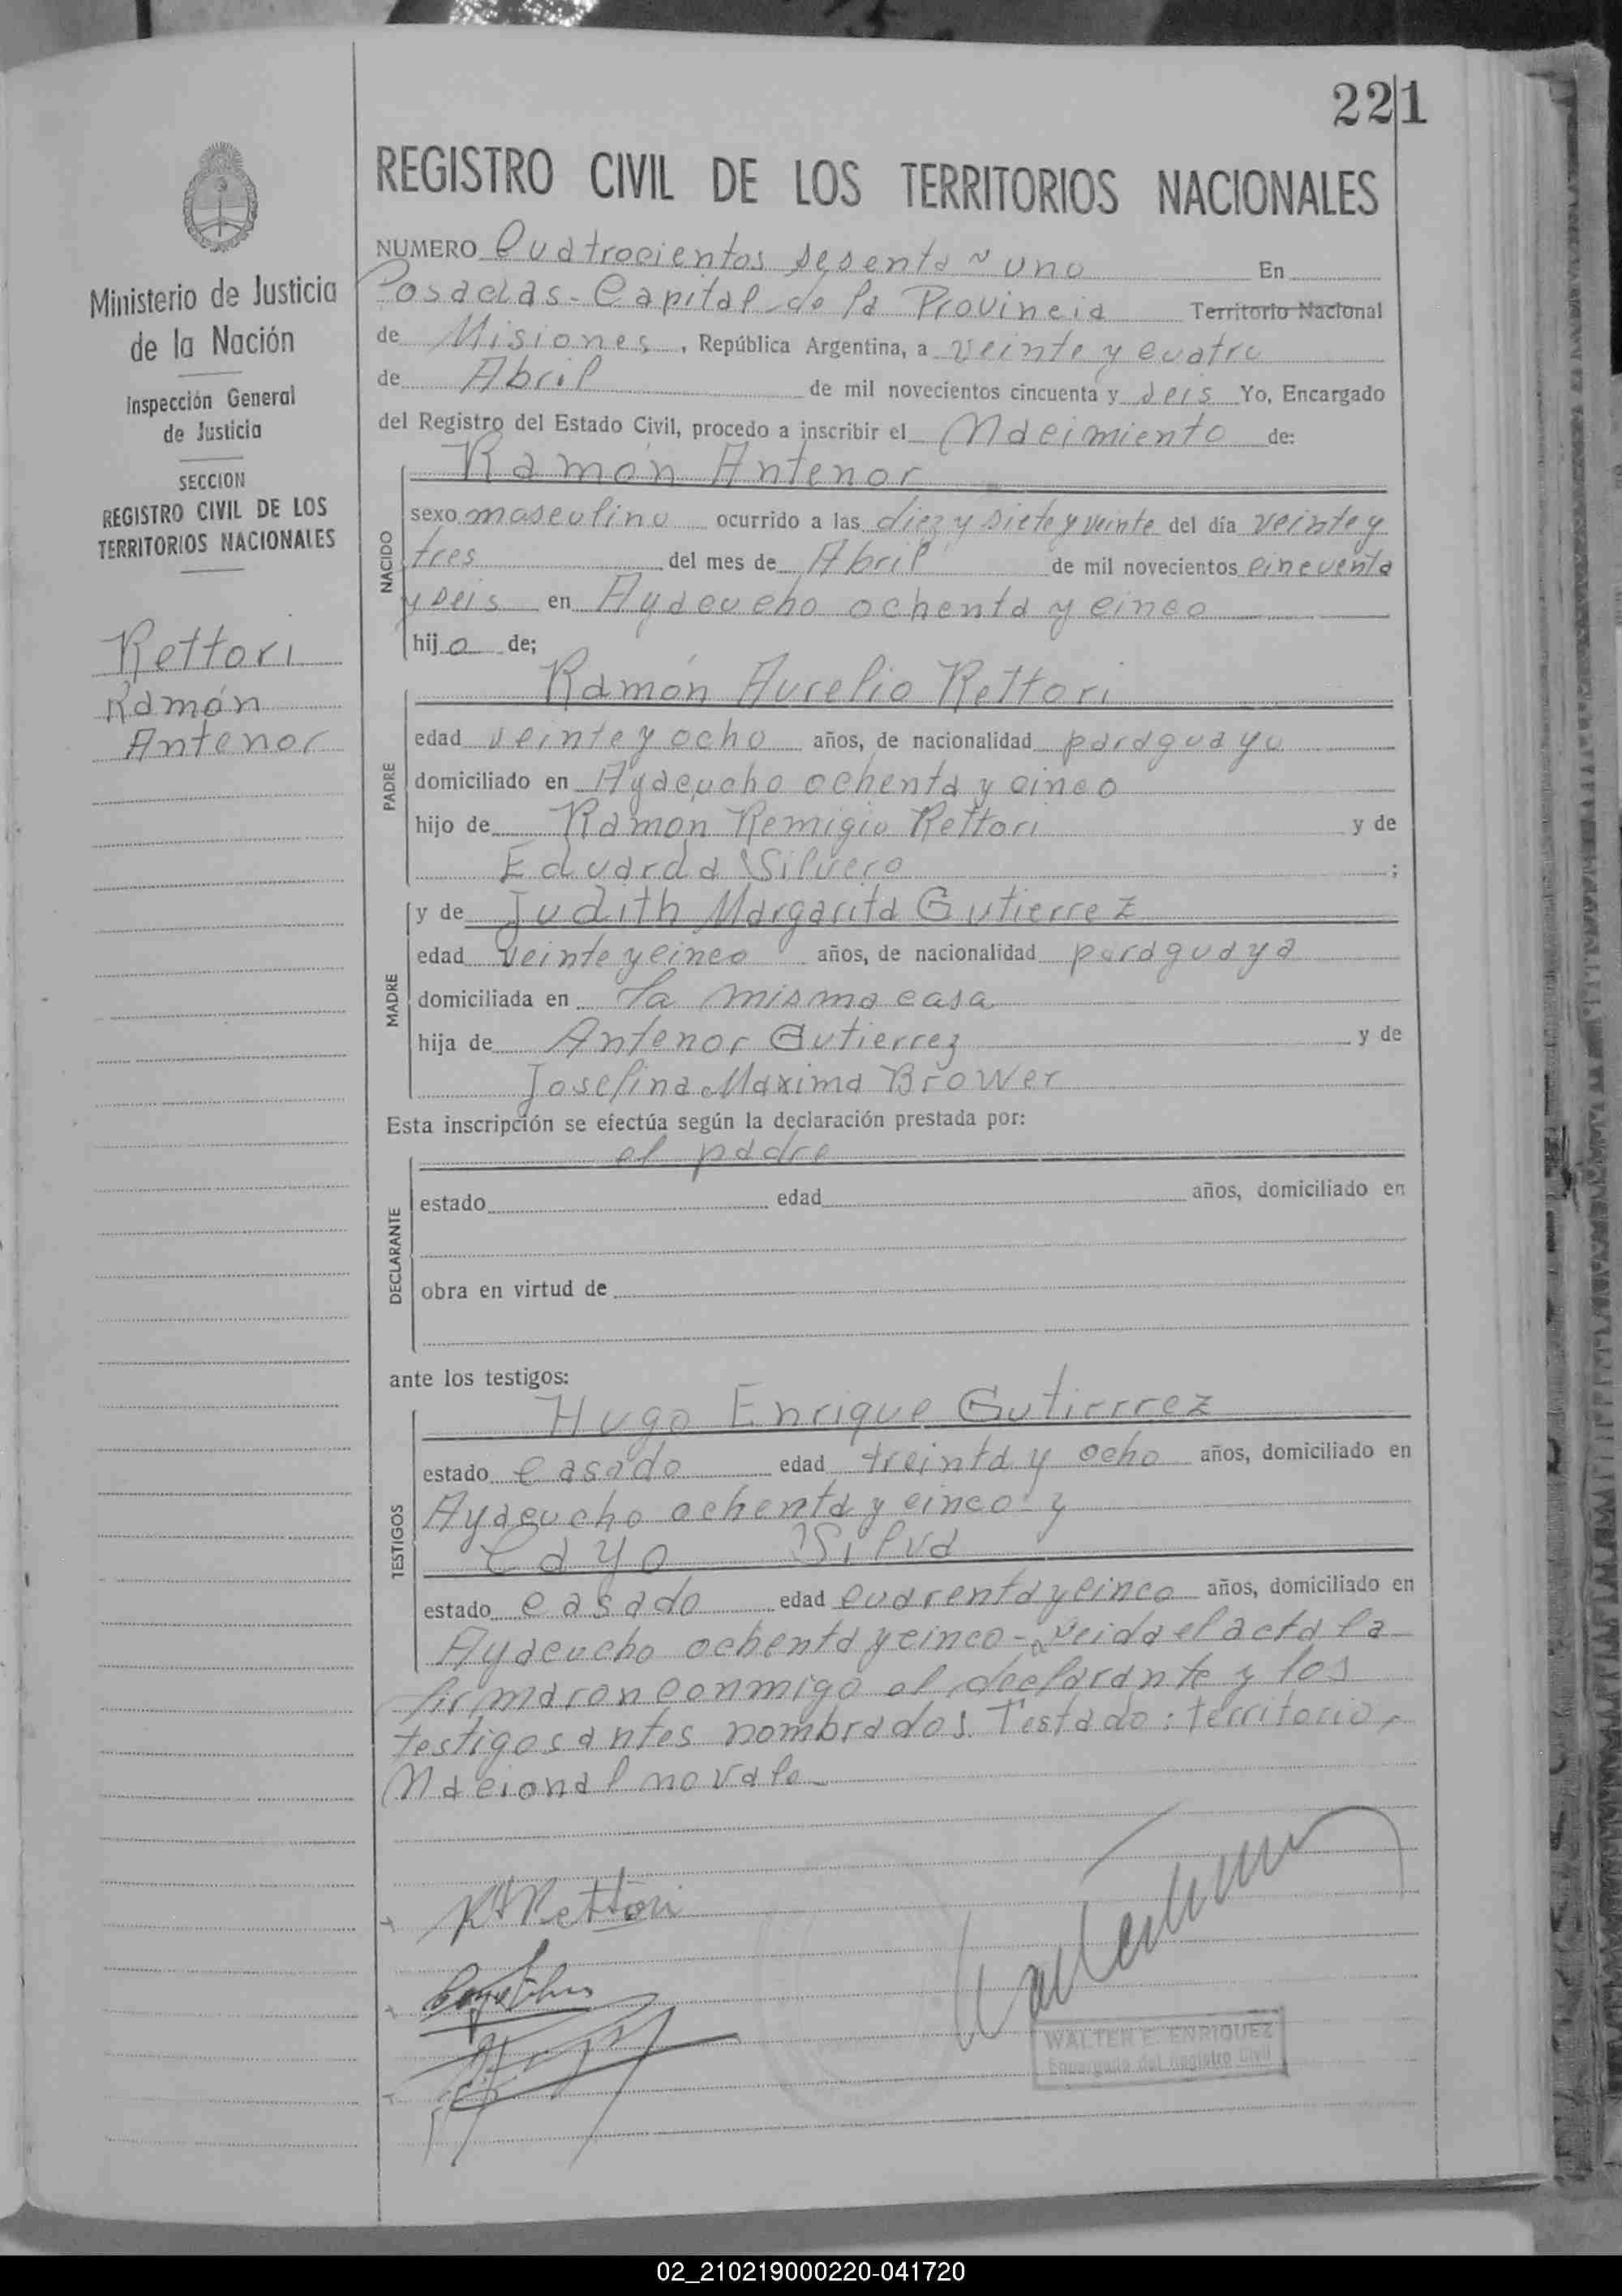 221
REGISTRO CIVIL DE LOS TERRITORIOS NACIONALES
Ministerio de Justicia
de la Nación
Inspección General
de Justicia
SECCION
REGISTRO CIVIL DE LOS
TERRITORIOS NACIONALES
Rettori
Ramón
Antenor
NUMERO Cuatrocientos sesenta ~ uno En
Posadas - Capital de la Provincia Territorio Nacional
de Misiones, República Argentina, a veinte y cuatro
de Abril de mil novecientos cincuenta y seis Yo, Encargado
del Registro del Estado Civil, procedo a inscribir el Nacimiento de:
NACIDO
Ramón Antenor
sexo masculino ocurrido a las diez y siete y veinte del día veinte y
tres del mes de Abril de mil novecientos cincuenta
y seis en Ayacucho ochenta y cinco
hijo de;
PADRE
Ramón Aurelio Rettori
edad veinte y ocho años, de nacionalidad paraguayo
domiciliado en Ayacucho ochenta y cinco
hijo de Ramon Remigio Rettori y de
Eduarda Silvero ;
MADRE
y de Judith Margarita Gutierrez
edad veinte y cinco años, de nacionalidad paraguaya
domiciliada en la misma casa
hija de Antenor Gutierrez y de
Josefina Maxima Brower
Esta inscripción se efectúa según la declaración prestada por:
DECLARANTE
el padre
estado edad años, domiciliado en
obra en virtud de
ante los testigos:
TESTIGOS
Hugo Enrique Gutierrrez
estado casado edad treinta y ocho años, domiciliado en
Ayacucho ochenta y cinco y
Cayo Silva
estado casado edad cuarenta y cinco años, domiciliado en
Ayacucho ochenta y cinco - Leida el acta la
firmaron conmigo el declarante y los
testigos antes nombrados. Testado: territorio,
Nacional no vale
R A Rettori
Cayo Silva
WALTER E. ENRIQUEZ
Encargado del Registro Civil
02_210219000220-041720